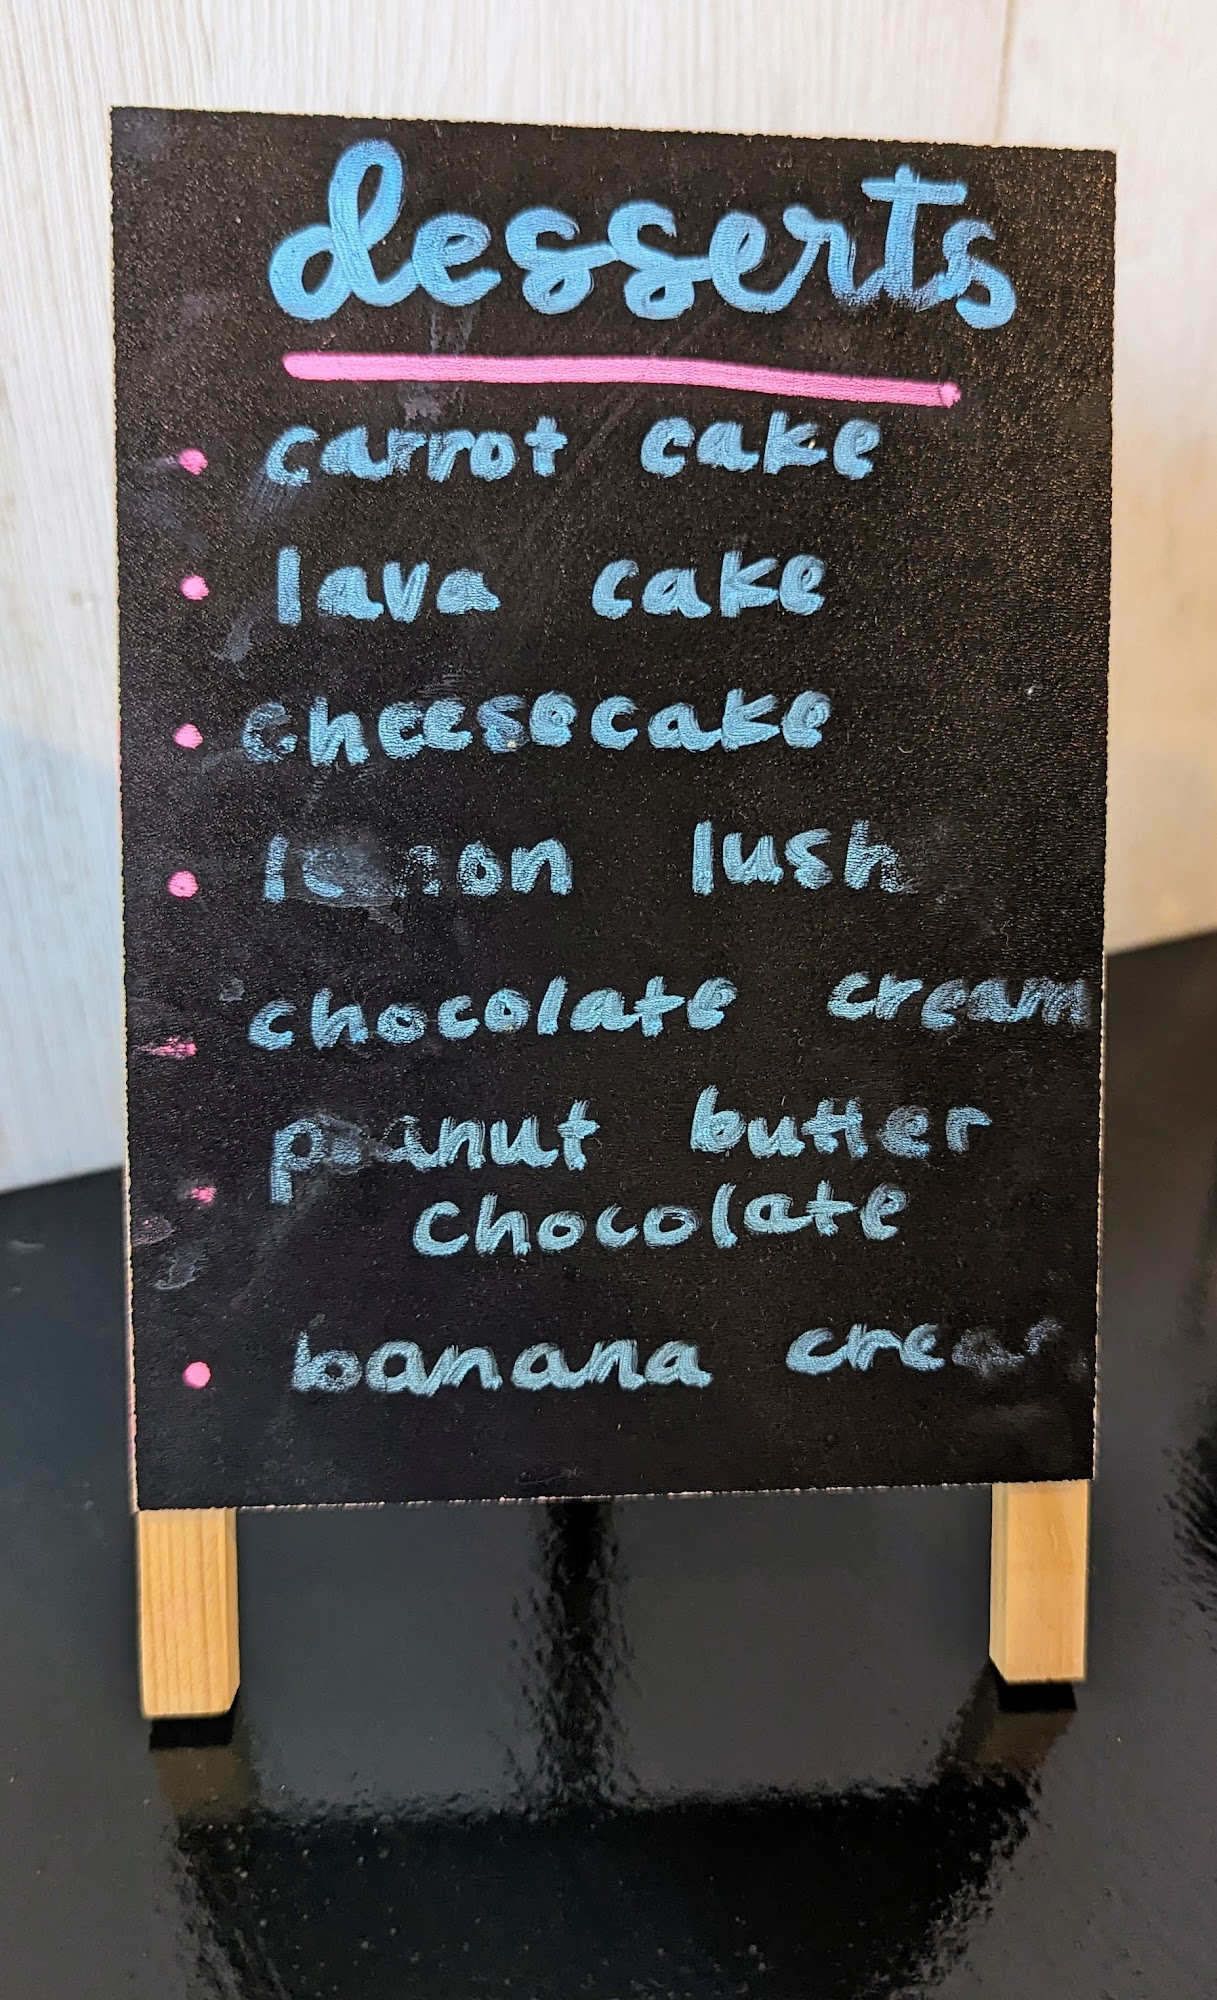 desserts
• carrot cake
• lava cake
• cheesecake
• lemon lush
• chocolate cream
• peanut butter
chocolate
• banana cream